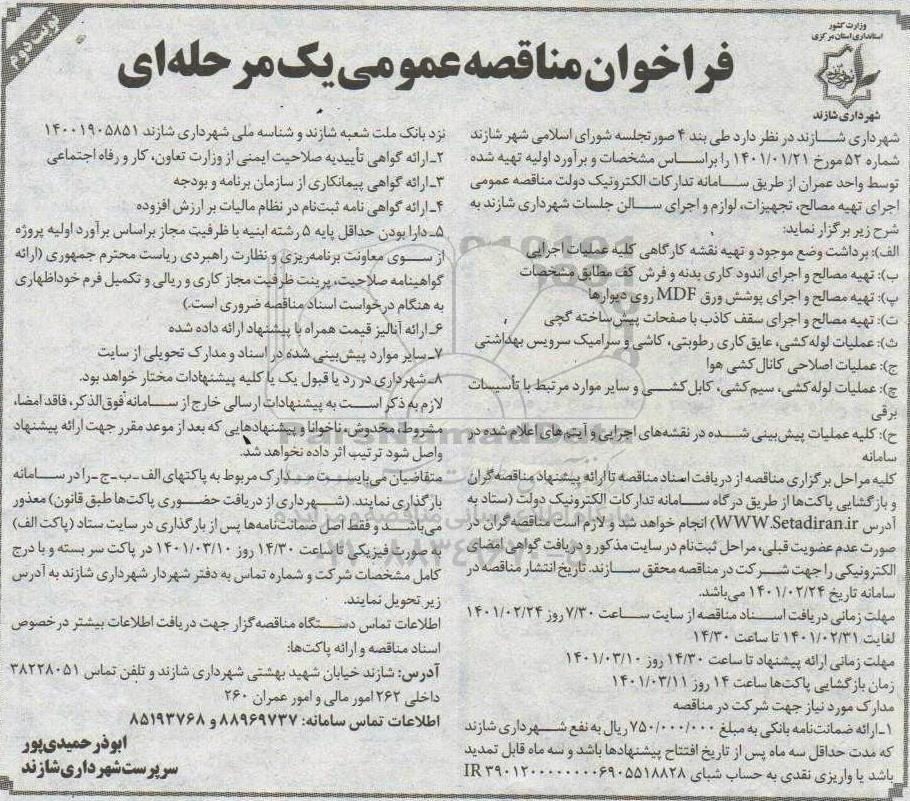 نوبت دوم
وزارت کشور
استانداری استان مرکزی
شهرداری شازند
فراخوان مناقصه عمومی یک مرحله‌ای
شهرداری شازند در نظر دارد طی بند ۴ صورتجلسه شورای اسلامی شهر شازند
شماره ۵۲ مورخ ۱۴۰۱/۰۱/۲۱ را براساس مشخصات و برآورد اولیه تهیه شده
توسط واحد عمران از طریق سامانه تدارکات الکترونیک دولت مناقصه عمومی
اجرای تهیه مصالح، تجهیزات، لوازم و اجرای سالن جلسات شهرداری شازند به
شرح زیر برگزار نماید:
الف): برداشت وضع موجود و تهیه نقشه کارگاهی کلیه عملیات اجرایی
ب): تهیه مصالح و اجرای اندود کاری بدنه و فرش کف مطابق مشخصات
پ): تهیه مصالح و اجرای پوشش ورق MDF روی دیوارها
ت): تهیه مصالح و اجرای سقف کاذب با صفحات پیش‌ساخته گچی
ث): عملیات لوله‌کشی، عایق‌کاری رطوبتی، کاشی و سرامیک سرویس بهداشتی
ج): عملیات اصلاحی کانال‌کشی هوا
چ): عملیات لوله‌کشی، سیم‌کشی، کابل‌کشی و سایر موارد مرتبط با تأسیسات
برقی
ح): کلیه عملیات پیش‌بینی شده در نقشه‌های اجرایی و آیتم‌های اعلام شده در
سامانه
کلیه مراحل برگزاری مناقصه از دریافت اسناد مناقصه تا ارائه پیشنهاد مناقصه‌گران
و بازگشایی پاکت‌ها از طریق درگاه سامانه تدارکات الکترونیک دولت (ستاد به
آدرس WWW.Setadiran.ir) انجام خواهد شد و لازم است مناقصه‌گران در
صورت عدم عضویت قبلی، مراحل ثبت‌نام در سایت مذکور و دریافت گواهی امضای
الکترونیکی را جهت شرکت در مناقصه محقق سازند. تاریخ انتشار مناقصه در
سامانه تاریخ ۱۴۰۱/۰۲/۲۴ می‌باشد.
مهلت زمانی دریافت اسناد مناقصه از سایت ساعت ۷/۳۰ روز ۱۴۰۱/۰۲/۲۴
لغایت ۱۴۰۱/۰۲/۳۱ تا ساعت ۱۴/۳۰
مهلت زمانی ارائه پیشنهاد تا ساعت ۱۴/۳۰ روز ۱۴۰۱/۰۳/۱۰
زمان بازگشایی پاکت‌ها ساعت ۱۴ روز ۱۴۰۱/۰۳/۱۱
مدارک مورد نیاز جهت شرکت در مناقصه
۱ـ ارائه ضمانت‌نامه بانکی به مبلغ ۷۵۰/۰۰۰/۰۰۰ ریال به نفع شهرداری شازند
که مدت حداقل سه ماه پس از تاریخ افتتاح پیشنهادها باشد و سه ماه قابل تمدید
باشد یا واریزی نقدی به حساب شبای
نزد بانک ملت شعبه شازند و شناسه ملی شهرداری شازند ۱۴۰۰۱۹۰۵۸۵۱
۲ـ ارائه گواهی تأییدیه صلاحیت ایمنی از وزارت تعاون، کار و رفاه اجتماعی
۳ـ ارائه گواهی پیمانکاری از سازمان برنامه و بودجه
۴ـ ارائه گواهی نامه ثبت‌نام در نظام مالیات بر ارزش افزوده
۵ـ دارا بودن حداقل پایه ۵ رشته ابنیه با ظرفیت مجاز براساس برآورد اولیه پروژه
از سوی معاونت برنامه‌ریزی و نظارت راهبردی ریاست محترم جمهوری (ارائه
گواهینامه صلاحیت، پرینت ظرفیت مجاز کاری و ریالی و تکمیل فرم خوداظهاری
به هنگام درخواست اسناد مناقصه ضروری است.)
۶ـ ارائه آنالیز قیمت همراه با پیشنهاد ارائه داده شده
۷ـ سایر موارد پیش‌بینی شده در اسناد و مدارک تحویلی از سایت
۸ـ شهرداری در رد یا قبول یک یا کلیه پیشنهادات مختار خواهد بود.
لازم به ذکر است به پیشنهادات ارسالی خارج از سامانه فوق‌الذکر، فاقد امضا،
مشروط مخدوش، ناخوانا و پیشنهادهایی که بعد از موعد مقرر جهت ارائه پیشنهاد
واصل شود ترتیب اثر داده نخواهد شد.
متقاضیان می‌بایست مدارک مربوط به پاکتهای الف-ب-ج-را در سامانه
بارگذاری نمایند. (شهرداری از دریافت حضوری پاکت‌ها طبق قانون) معذور
می‌باشد و فقط اصل ضمانت‌نامه‌ها پس از بارگذاری در سایت ستاد (پاکت الف)
به صورت فیزیکی تا ساعت ۱۴/۳۰ روز ۱۴۰۱/۰۳/۱۰ در پاکت سر بسته و با درج
کامل مشخصات شرکت و شماره تماس به دفتر شهردار شهرداری شازند به آدرس
زیر تحویل نمایند.
اطلاعات تماس دستگاه مناقصه‌گزار جهت دریافت اطلاعات بیشتر در خصوص
اسناد مناقصه و ارائه پاکت‌ها:
آدرس: شازند خیابان شهید بهشتی شهرداری شازند و تلفن تماس ۳۸۲۲۸۰۵۱
داخلی ۲۶۲ امور مالی و امور عمران ۲۶۰
اطلاعات تماس سامانه: ۸۸۹۶۹۷۳۷ و ۸۵۱۹۳۷۶۸
ابوذر حمیدی‌پور
سرپرست شهرداری شازند
ParsNamadData